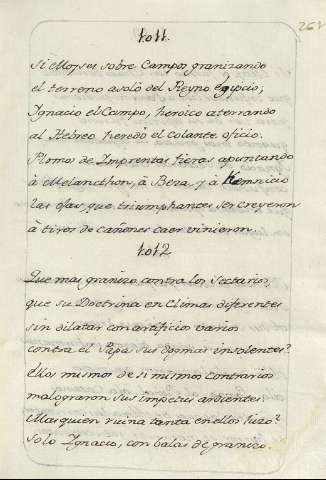 262
1011.
Si Moyses sobre Campos granizando
el terreno asoló del Reyno Egipcio;
Ygnacio el Campo, heroico aterrando
al Hebreo heredó el colante oficio.
Plomo de Imprentas fieras apuntando
à Melancthon, à Beza, y à Kemnicio
las ofas, que triumphantes ser creyeron
à tiros de cañones caer vinieron.
1012
Que mas granizo contra los Sectarios,
que su Doctrina en Climas diferentes
sin dilatar con artificios varios
contra el Papa sus dogmas insolentes?
Ellos mismos de si mismos contrarios
malograron sus impetus ardientes.
Mas quien ruina tanta en ellos hizo?
Solo Ignacio, con balas de granizo.